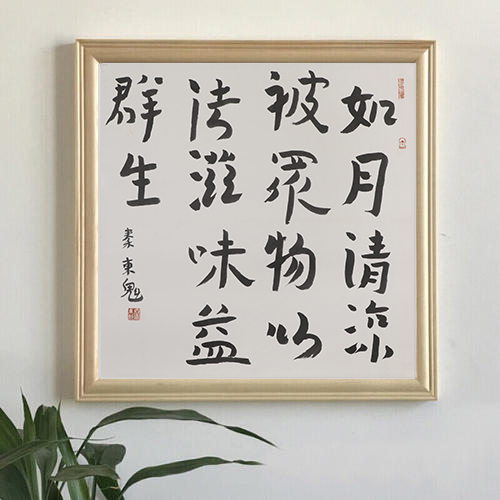 如月清涼
被眾物以
法滋味益
群生
秦東魁